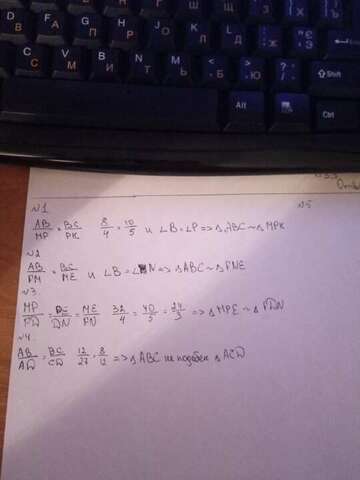 D F G H J K L : "
В А П Р О Л Д Ж Є
C V B N M < > ?
С М И Т Ь Б Ю
Shift
Alt
Ctrl
№1 №5
AB/MP = BC/PK 8/4 = 10/5 и ∠B = ∠P => △ABC ~ △MPK
№2
AB/PN = BC/NE и ∠B = ∠N => △ABC ~ △PNE
№3
MP/PD = PE/DN = ME/PN 32/4 = 40/5 = 24/3 => △MPE ~ △PDN
№4
AB/AD = BC/CD 12/27 = 8/12 => △ABC не подобен △ACD